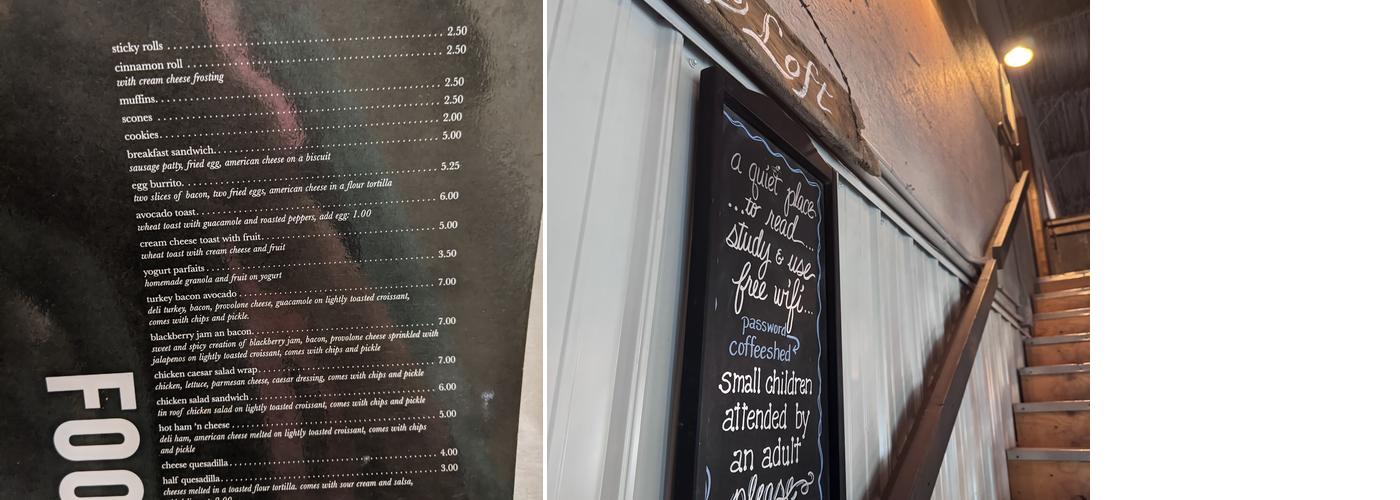 sticky rolls 2.50
cinnamon roll 2.50
with cream cheese frosting
muffins 2.50
scones 2.50
cookies 2.00
breakfast sandwich 5.00
sausage patty, fried egg, american cheese on a biscuit
egg burrito 5.25
two slices of bacon, two fried eggs, american cheese in a flour tortilla
avocado toast 6.00
wheat toast with guacamole and roasted peppers, add egg: 1.00
cream cheese toast with fruit 5.00
wheat toast with cream cheese and fruit
yogurt parfaits 3.50
homemade granola and fruit on yogurt
turkey bacon avocado 7.00
deli turkey, bacon, provolone cheese, guacamole on lightly toasted croissant,
comes with chips and pickle.
blackberry jam an bacon 7.00
sweet and spicy creation of blackberry jam, bacon, provolone cheese sprinkled with
jalapenos on lightly toasted croissant, comes with chips and pickle
chicken caesar salad wrap 7.00
chicken, lettuce, parmesan cheese, caesar dressing, comes with chips and pickle
chicken salad sandwich 6.00
tin roof chicken salad on lightly toasted croissant, comes with chips and pickle
hot ham 'n cheese 5.00
deli ham, american cheese melted on lightly toasted croissant, comes with chips
and pickle
cheese quesadilla 4.00
half quesadilla 3.00
cheeses melted in a toasted flour tortilla. comes with sour cream and salsa,
FOO
Loft
a quiet place
...to read...
study & use
free wifi...
password
coffeeshed
small children
attended by
an adult
please